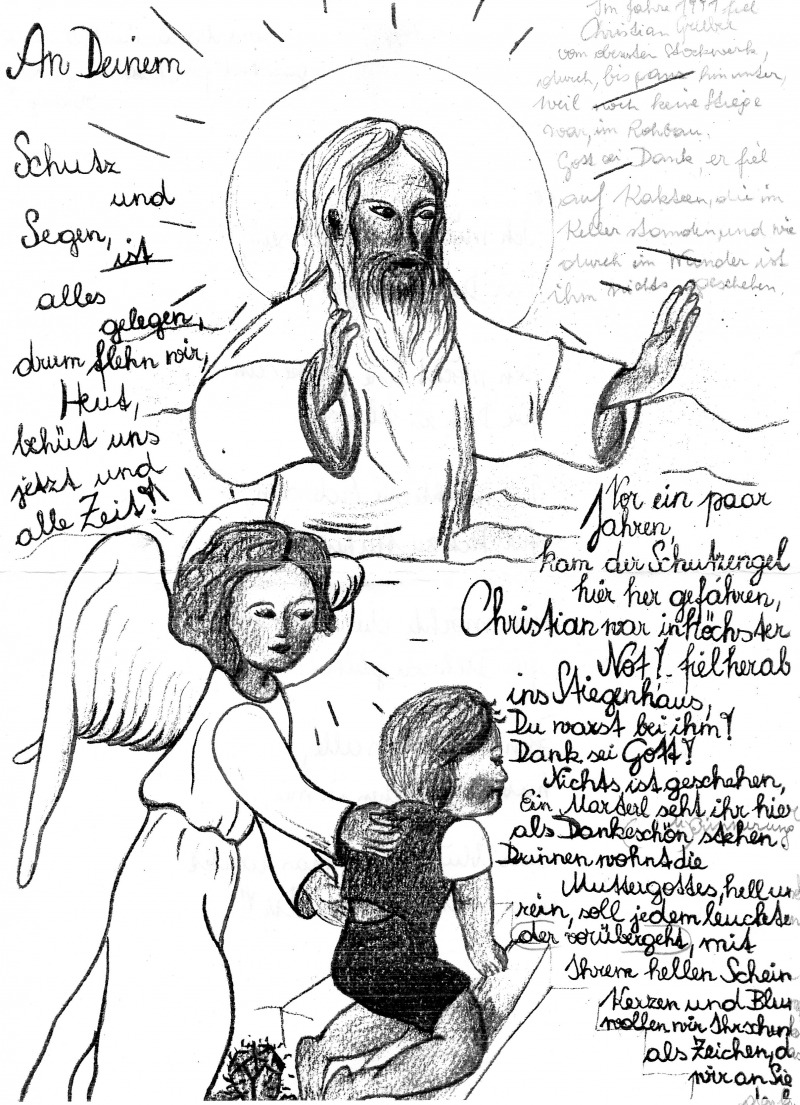 An Deinem
Schutz
und
Segen,
ist
alles
gelegen,
drum flehn wir,
Heut,
behüt uns
jetzt und
alle Zeit!
Im Jahre 1991 fiel
Christian Gruber
vom obersten Stockwerk,
durch, bis ganz hinunter,
weil noch keine Stiege
war, im Rohbau.
Gott sei Dank, er fiel
auf Kakteen, die im
Keller standen, und wie
durch ein Wunder ist
ihm nichts geschehen.
Vor ein paar
Jahren,
kam der Schutzengel
hier her gefahren,
Christian war in Höchster
Not! fiel herab
ins Stiegenhaus,
Du warst bei ihm!
Dank sei Gott!
Nichts ist geschehen,
Ein Marterl seht ihr hier
als Dankeschön stehen
Drinnen wohnt die
Muttergottes, hell u
rein, soll jedem leuchten
der vorübergeht, mit
Ihrem hellen Schein
Herzen und Blu
wollen wir Ihr schen
als Zeichen, d
wir an Sie